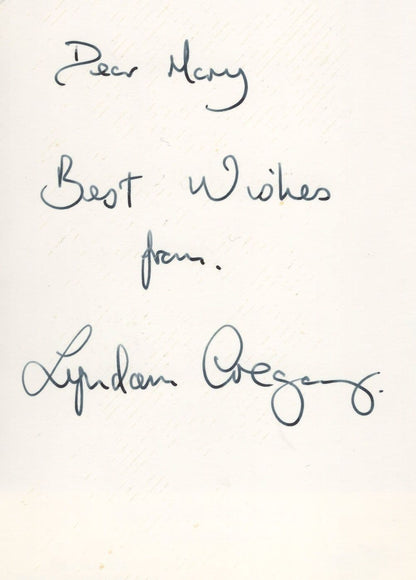 Dear Mary
Best Wishes
from.
Lyndam Gregory.